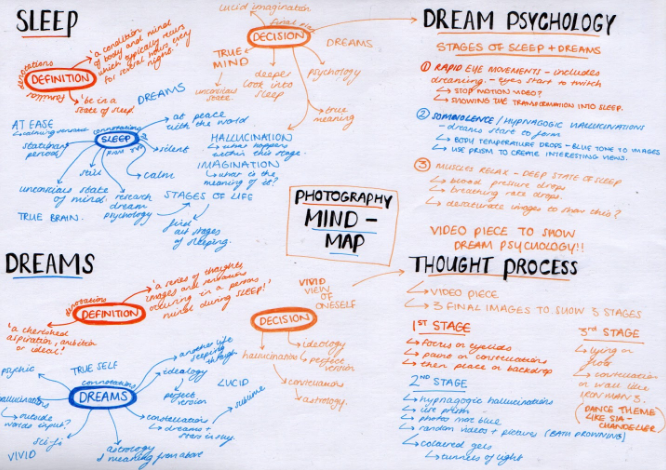 SLEEP
denotations
DEFINITION
'a condition
of body and mind
which typically occurs
for several hours every
night.'
'be in a
state of sleep'
DREAMS
AT EASE
connotations
SLEEP
at peace
with the world
silent
calm
unconscious state
of mind.
TRUE BRAIN.
research
dream
psychology
STAGES OF LIFE
first
stages
of sleeping.
lucid imagination
final idea
DECISION
TRUE
MIND
unconscious state
deeper
look into
sleep
DREAMS
psychology
true
meaning
HALLUCINATION
what happens
within this stage.
IMAGINATION
what is the
meaning of it?
PHOTOGRAPHY
MIND-
MAP
DREAM PSYCHOLOGY
STAGES OF SLEEP + DREAMS
① RAPID EYE MOVEMENTS - includes
dreaming - eyes start to twitch
↳ STOP MOTION VIDEO?
↳ SHOWING THE TRANSFORMATION INTO SLEEP.
② SOMNOLENCE / HYPNAGOGIC HALLUCINATIONS
- dreams start to form
↳ BODY TEMPERATURE DROPS - BLUE TONE TO IMAGES
↳ USE PRISM TO CREATE INTERESTING VIEWS.
③ MUSCLES RELAX - DEEP STATE OF SLEEP
↳ blood pressure drops
↳ breathing rate drops.
↳ desaturate images to show this?
VIDEO PIECE TO SHOW
DREAM PSYCHOLOGY!!
DREAMS
denotations
DEFINITION
'a series of thoughts
images and sensations
occuring in a persons
mind during SLEEP!'
'a cherished
aspiration, ambition
or ideal!'
psychic
TRUE SELF
connotations
DREAMS
another life
seeping
through
ideology
perfect
version
LUCID
constellations
↳ dreams +
stars in sky
hallucinations
↳ outside
words input?
sci-fi
VIVID
astrology
↳ meaning from above
VIVID
VIEW OF
ONESELF
DECISION
ideology
↳ perfect
version
hallucination
constellations
astrology.
THOUGHT PROCESS
↳ VIDEO PIECE
↳ 3 FINAL IMAGES TO SHOW 3 STAGES
1ST STAGE
↳ focus on eyelids
↳ paint on constellations
↳ then place on backdrop
2ND STAGE
↳ hypnagogic hallucinations
↳ use prism
↳ random videos + pictures (BATH DROWNING)
↳ coloured gels
↳ tunnels of light
3RD STAGE
↳ lying on
floor
↳ constellation
on wall like
IRON MAN 3.
(DANCE THEME
LIKE SIA -
CHANDELIER)